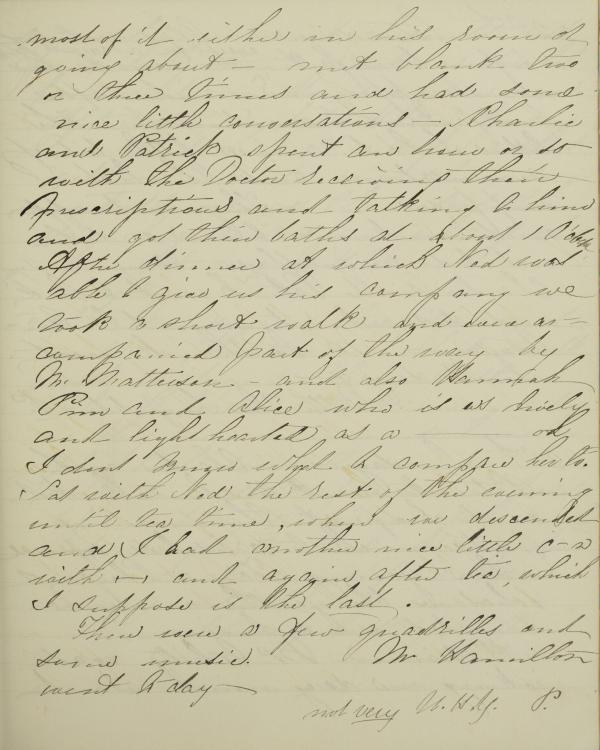 most of it either in his room or
going about — met blank two
or three times and had some
nice little conversations — Charlie
and Patrick spent an hour or so
with the Doctor receiving their
prescriptions and talking to him
and got their baths at about 1 O'clock
After dinner at which Ned was
able to give us his company we
took a short walk and were ac-
companied part of the way by
Mr. Matterson — and also Hannah
Pim and Alice who is as lively
and light hearted as a ——— oh
I dont know what to compare her to.
Sat with Ned the rest of the evening
until tea time, when we descended
and I had another nice little c—n
with — and again after tea, which
I suppose is the last.
There were a few quadrilles and
some music. Mr Hamilton
went to day —
not very U. H. Y. P.